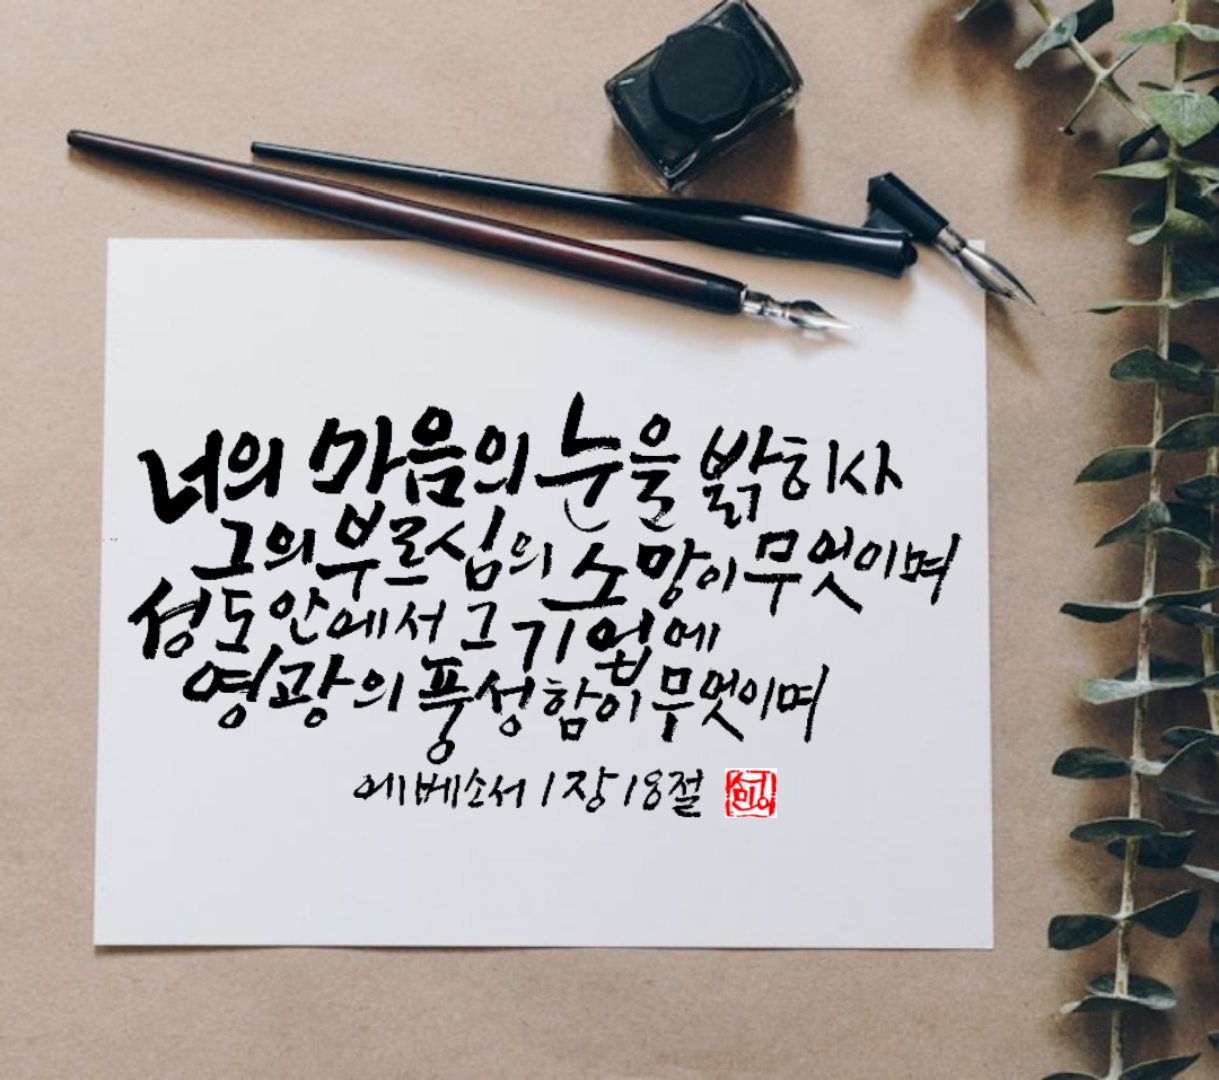 너의 마음의 눈을 밝히사
그의 부르심의 소망이 무엇이며
성도 안에서 그 기업에
영광의 풍성함이 무엇이며
에베소서 1장 18절